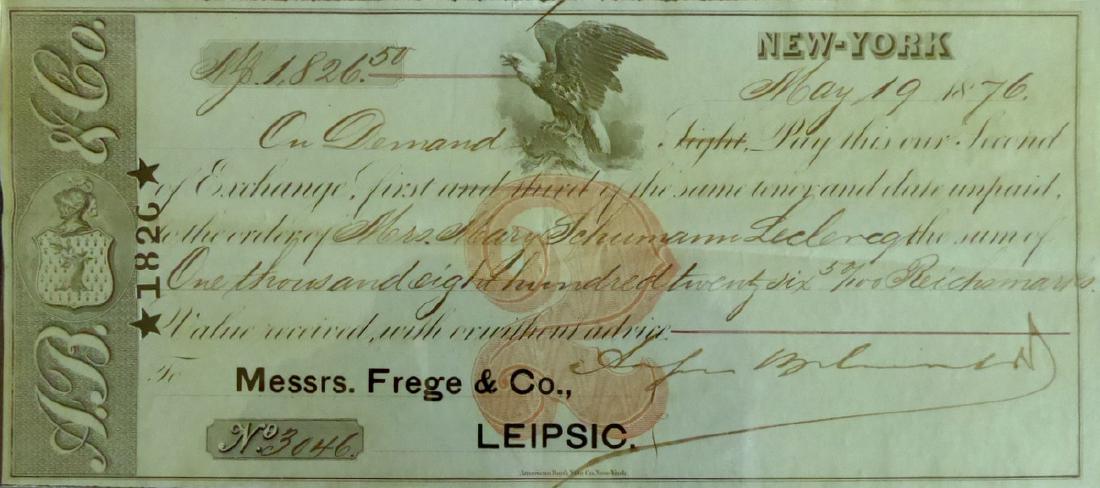 A.B. & Co.
★1826★
M/. 1,826.50
NEW-YORK
May 19 1876.
On Demand sight, Pay this our Second
of Exchange, first and third of the same tenor and date unpaid,
to the order of Mrs. Mary Schumann Leclercq the sum of
One thousand eight hundred twenty six 50/100 Reichsmarks.
Value received, with or without advice.
To
Messrs. Frege & Co.,
LEIPSIC.
No 3046.
American Bank Note Co. New-York.